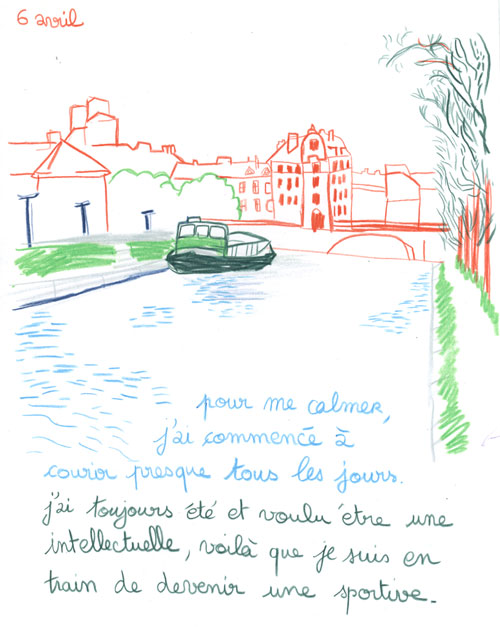 6 avril
pour me calmer,
j'ai commencé à
courir presque tous les jours.
j'ai toujours été et voulu être une
intellectuelle, voilà que je suis en
train de devenir une sportive.